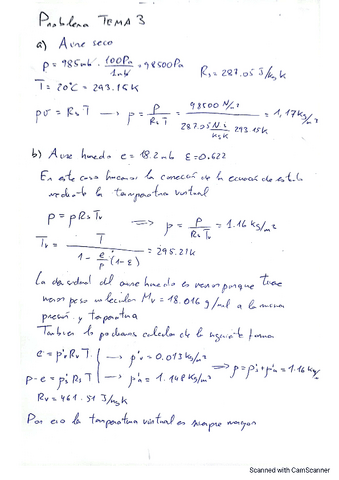 Problema TEMA 3
a) Aire seco
p = 985mb · 100Pa / 1mb = 98500Pa
Rs = 287.05 J/kgK
T = 20°C = 293.15K
pv = RsT → ρ = p / RsT = 98500 N/m² / 287.05 N·m/kgK 293.15K = 1,17 kg/m³
b) Aire humedo e = 18.2mb ε = 0.622
En este caso hacemos la corrección de la ecuación de estado
mediante la temperatura virtual
p = ρRsTv ⟹ ρ = p / RsTv = 1.16 kg/m³
Tv = T / 1 - e/p (1-ε) = 295.21K
La densidad del aire humedo es menor porque tiene
menor peso molecular Mv = 18.016 g/mol a la misma
presión y temperatura
Tambien lo podiamos calcular de la siguiente forma
e = ρ'vRvT → ρ'v = 0.013 kg/m³
⟹ ρ = ρ's + ρ'v = 1.16 kg/m³
p-e = ρ'sRsT → ρ's = 1.148 kg/m³
Rv = 461.51 J/kgK
Por eso la temperatura virtual es siempre mayor
Scanned with CamScanner